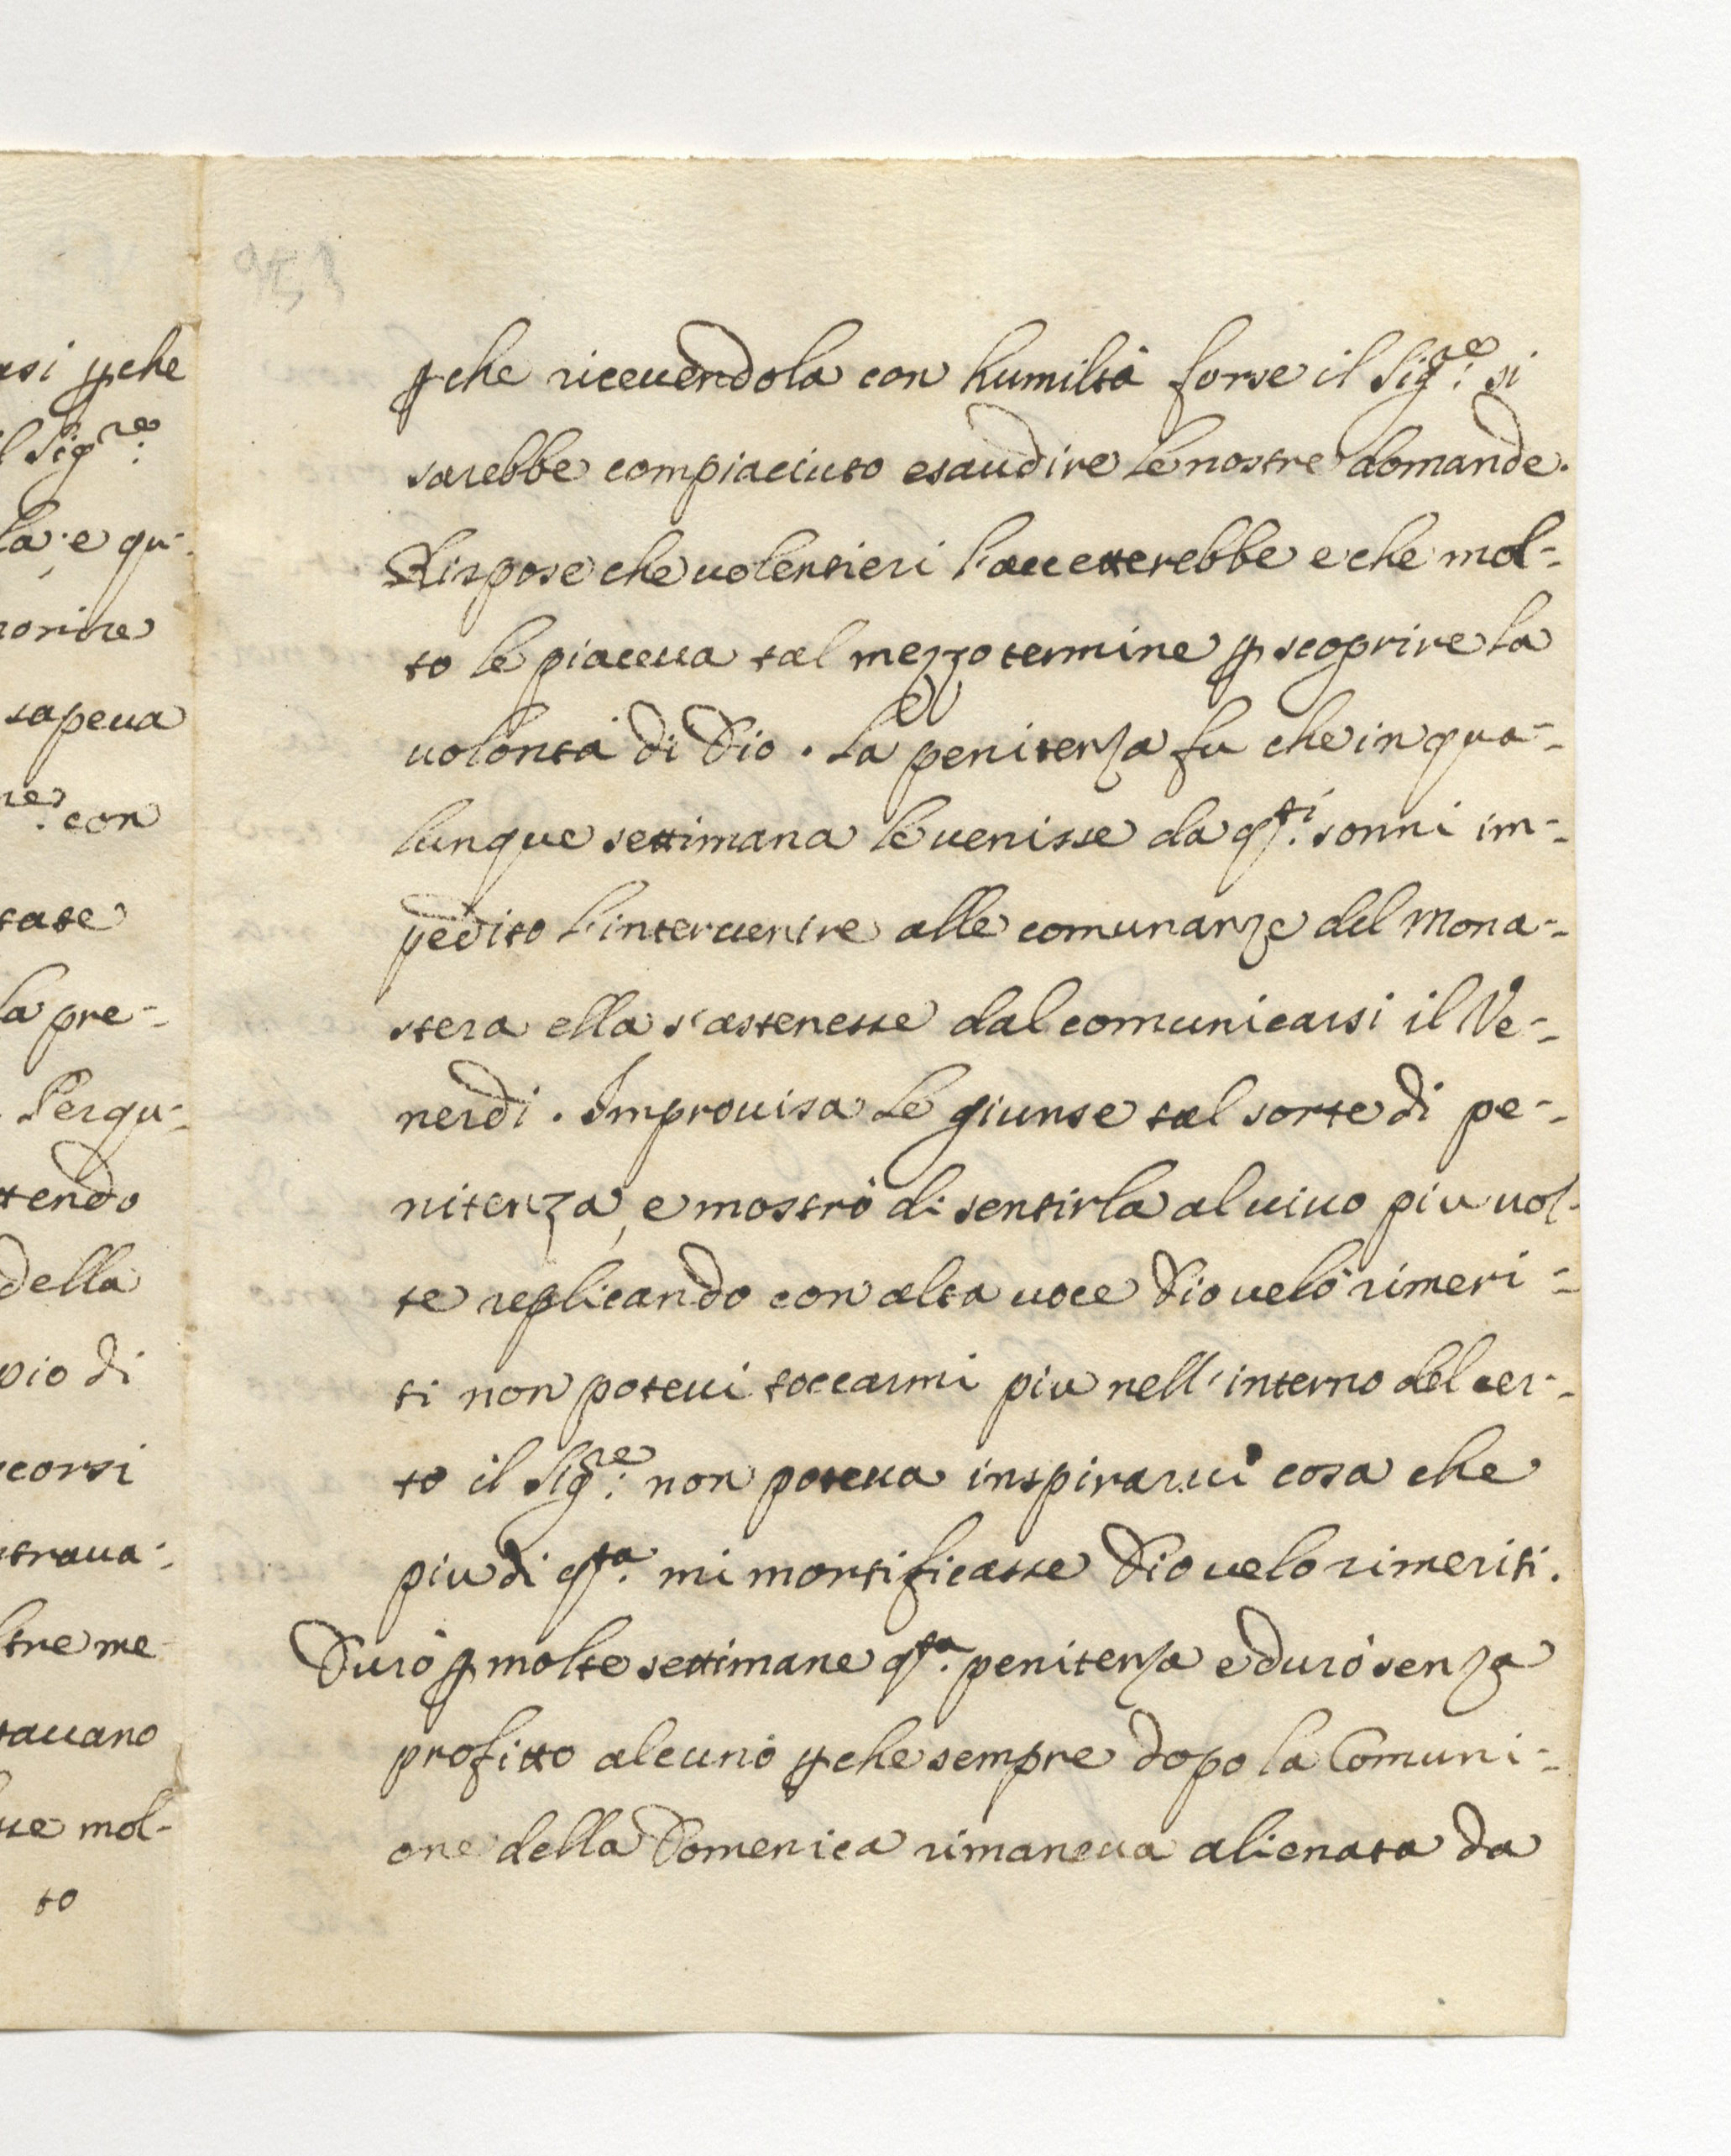 asi ꝑche
il Sig.re
la; e qu-
morire
sapeua
re. con
tate
la pre-
Perqu-
ttendo
della
pio di
scorsi
straua-
ltre me
tauano
ue mol-
to
ꝑche riceuendola con humiltà forse il Sig.re si
sarebbe compiaciuto esaudire le nostre domande.
Rispose che uolentieri l'accetterebbe e che mol-
to le piaceua tal mezzo termine ꝑ scoprire la
uolontà di Dio. La penitenza fu che in qua-
lunque settimana le uenisse da q.sti sonni im-
pedito l'interuenire alle comunanze del Mona-
stera ella s'astenesse dal comunicarsi il Ve-
nerdi. Improuisa le giunse tal sorte di pe-
nitenza, e mostrò di sentirla al uiuo piu uol-
te replicando con alta uoce Dio uelo rimeri-
ti non poteui toccarmi piu nell'interno del cer-
to il Sig.re non poteua inspirarui cosa che
piu di q.sta mi mortificasse Dio uelo rimeriti.
Durò ꝑ molte settimane q.sta penitenza e durò senza
profitto alcuno ꝑche sempre dopo la Comuni-
one della Domenica rimaneua alienata da